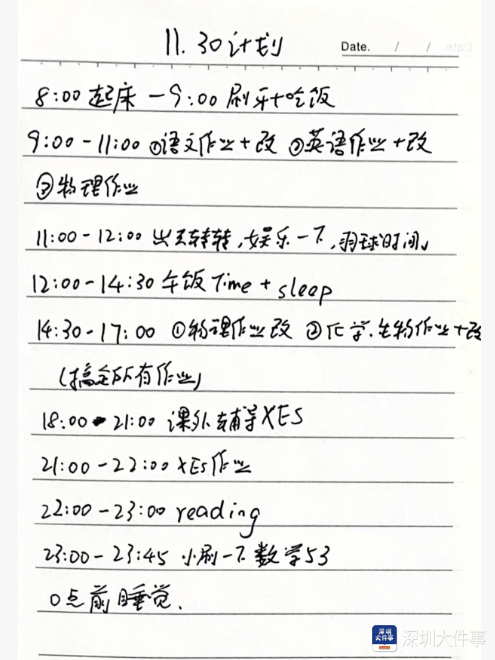 11.30计划
Date. / /
8:00 起床 — 9:00 刷牙+吃饭
9:00-11:00 ①语文作业+改 ②英语作业+改
③物理作业
11:00-12:00 出去转转,娱乐一下,羽球时间
12:00-14:30 午饭Time + sleep
14:30-17:00 ①物理作业改 ②化学.生物作业+改
(搞定所有作业)
18:00-21:00 课外辅导XES
21:00-22:00 XES作业
22:00-23:00 reading
23:00-23:45 小刷一下数学53
0点前睡觉.
深圳大件事 深圳大件事